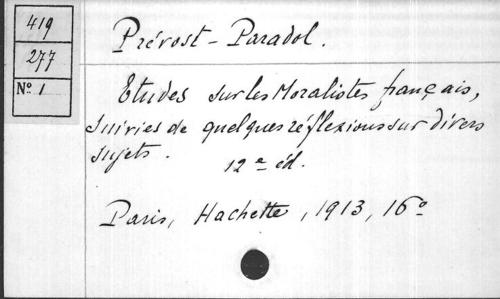 419
277
Nº 1
Prévost-Paradol.
Etudes sur les Moralistes français,
suivies de quelques réflexions sur divers
sujets. 12e éd.
Paris, Hachette, 1913, 16º